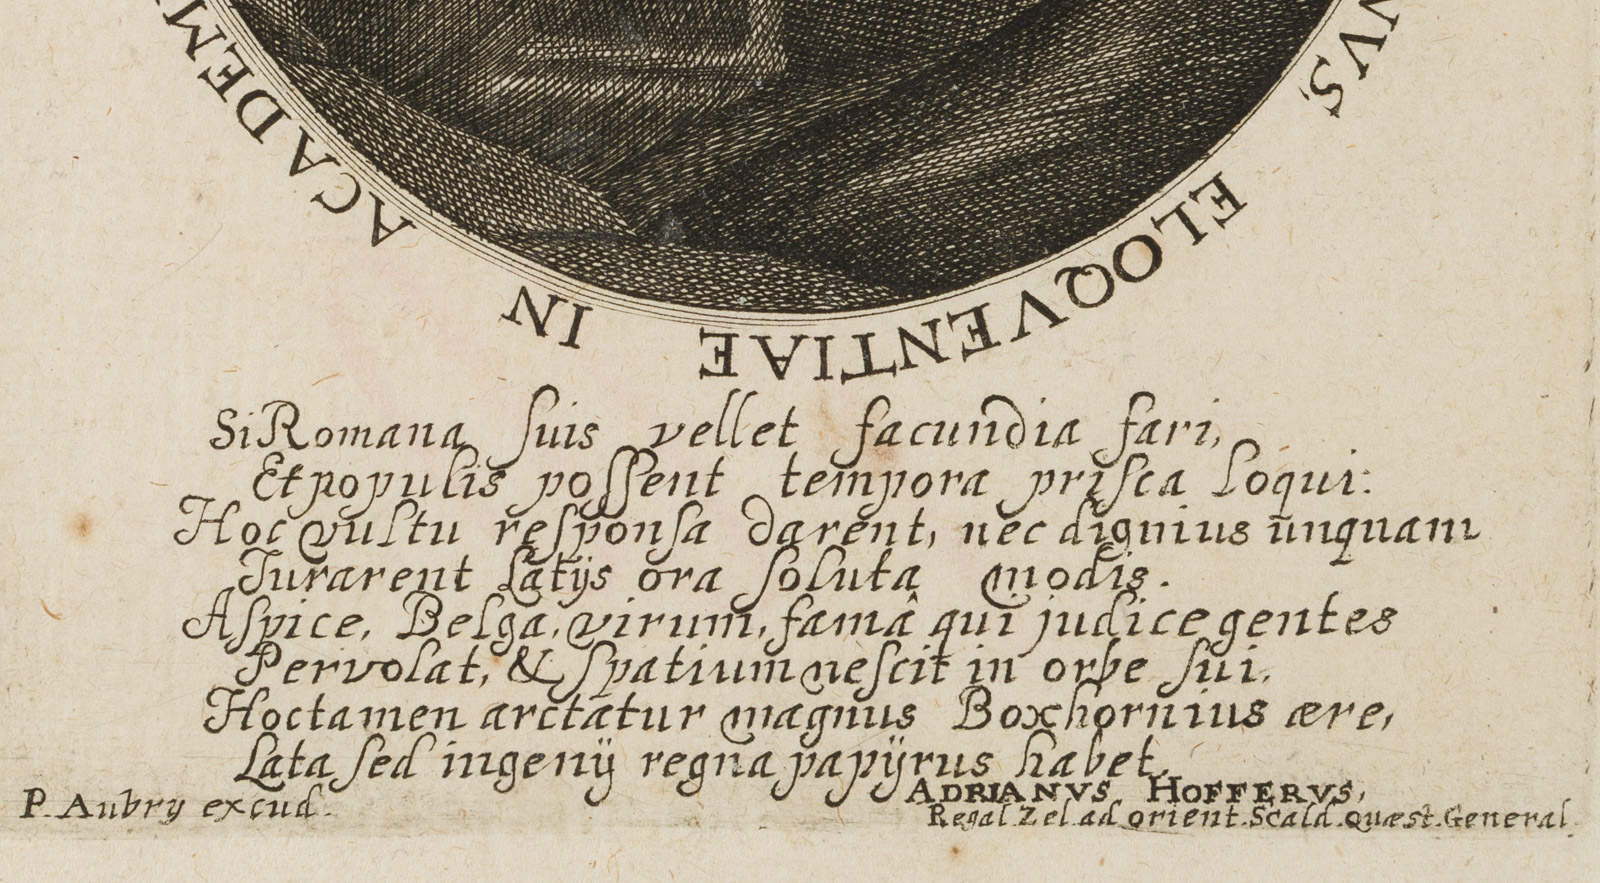 VVS, ELOQVENTIAE IN ACADEM
Si Romana suis vellet facundia fari,
Et populis possent tempora prisca loqui:
Hoc vultu responsa darent, nec dignius unquam
Jurarent Latijs ora soluta modis.
Aspice, Belga, virum, famâ qui judice gentes
Pervolat, & spatium nescit in orbe sui,
Hoc tamen arctatur magnus Boxhornius ære,
Lata sed ingenij regna papÿrus habet.
ADRIANVS HOFFERVS,
P. Aubry excud.
Regal. Zel. ad orient. Scald. Quæst. General.